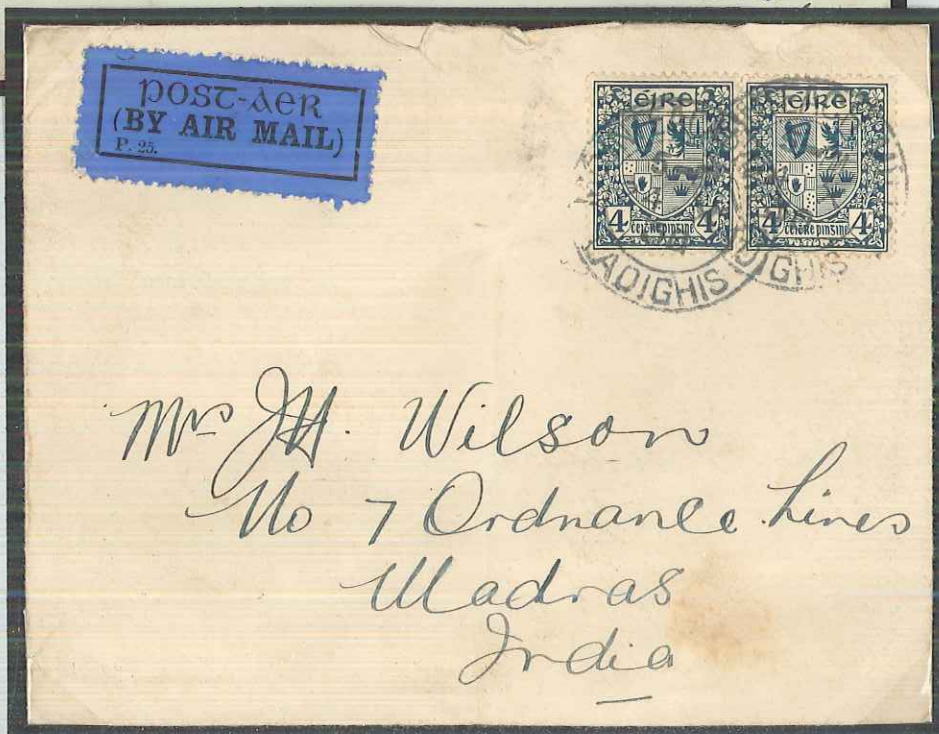 POST-AER
(BY AIR MAIL)
P. 25.
éire
éire
4 4
ceiṫre pinsine
4 4
ceiṫre pinsine
LAOIGHIS
OIGHIS
Mrs J.H. Wilson
No 7 Ordnance Lines
Madras
India